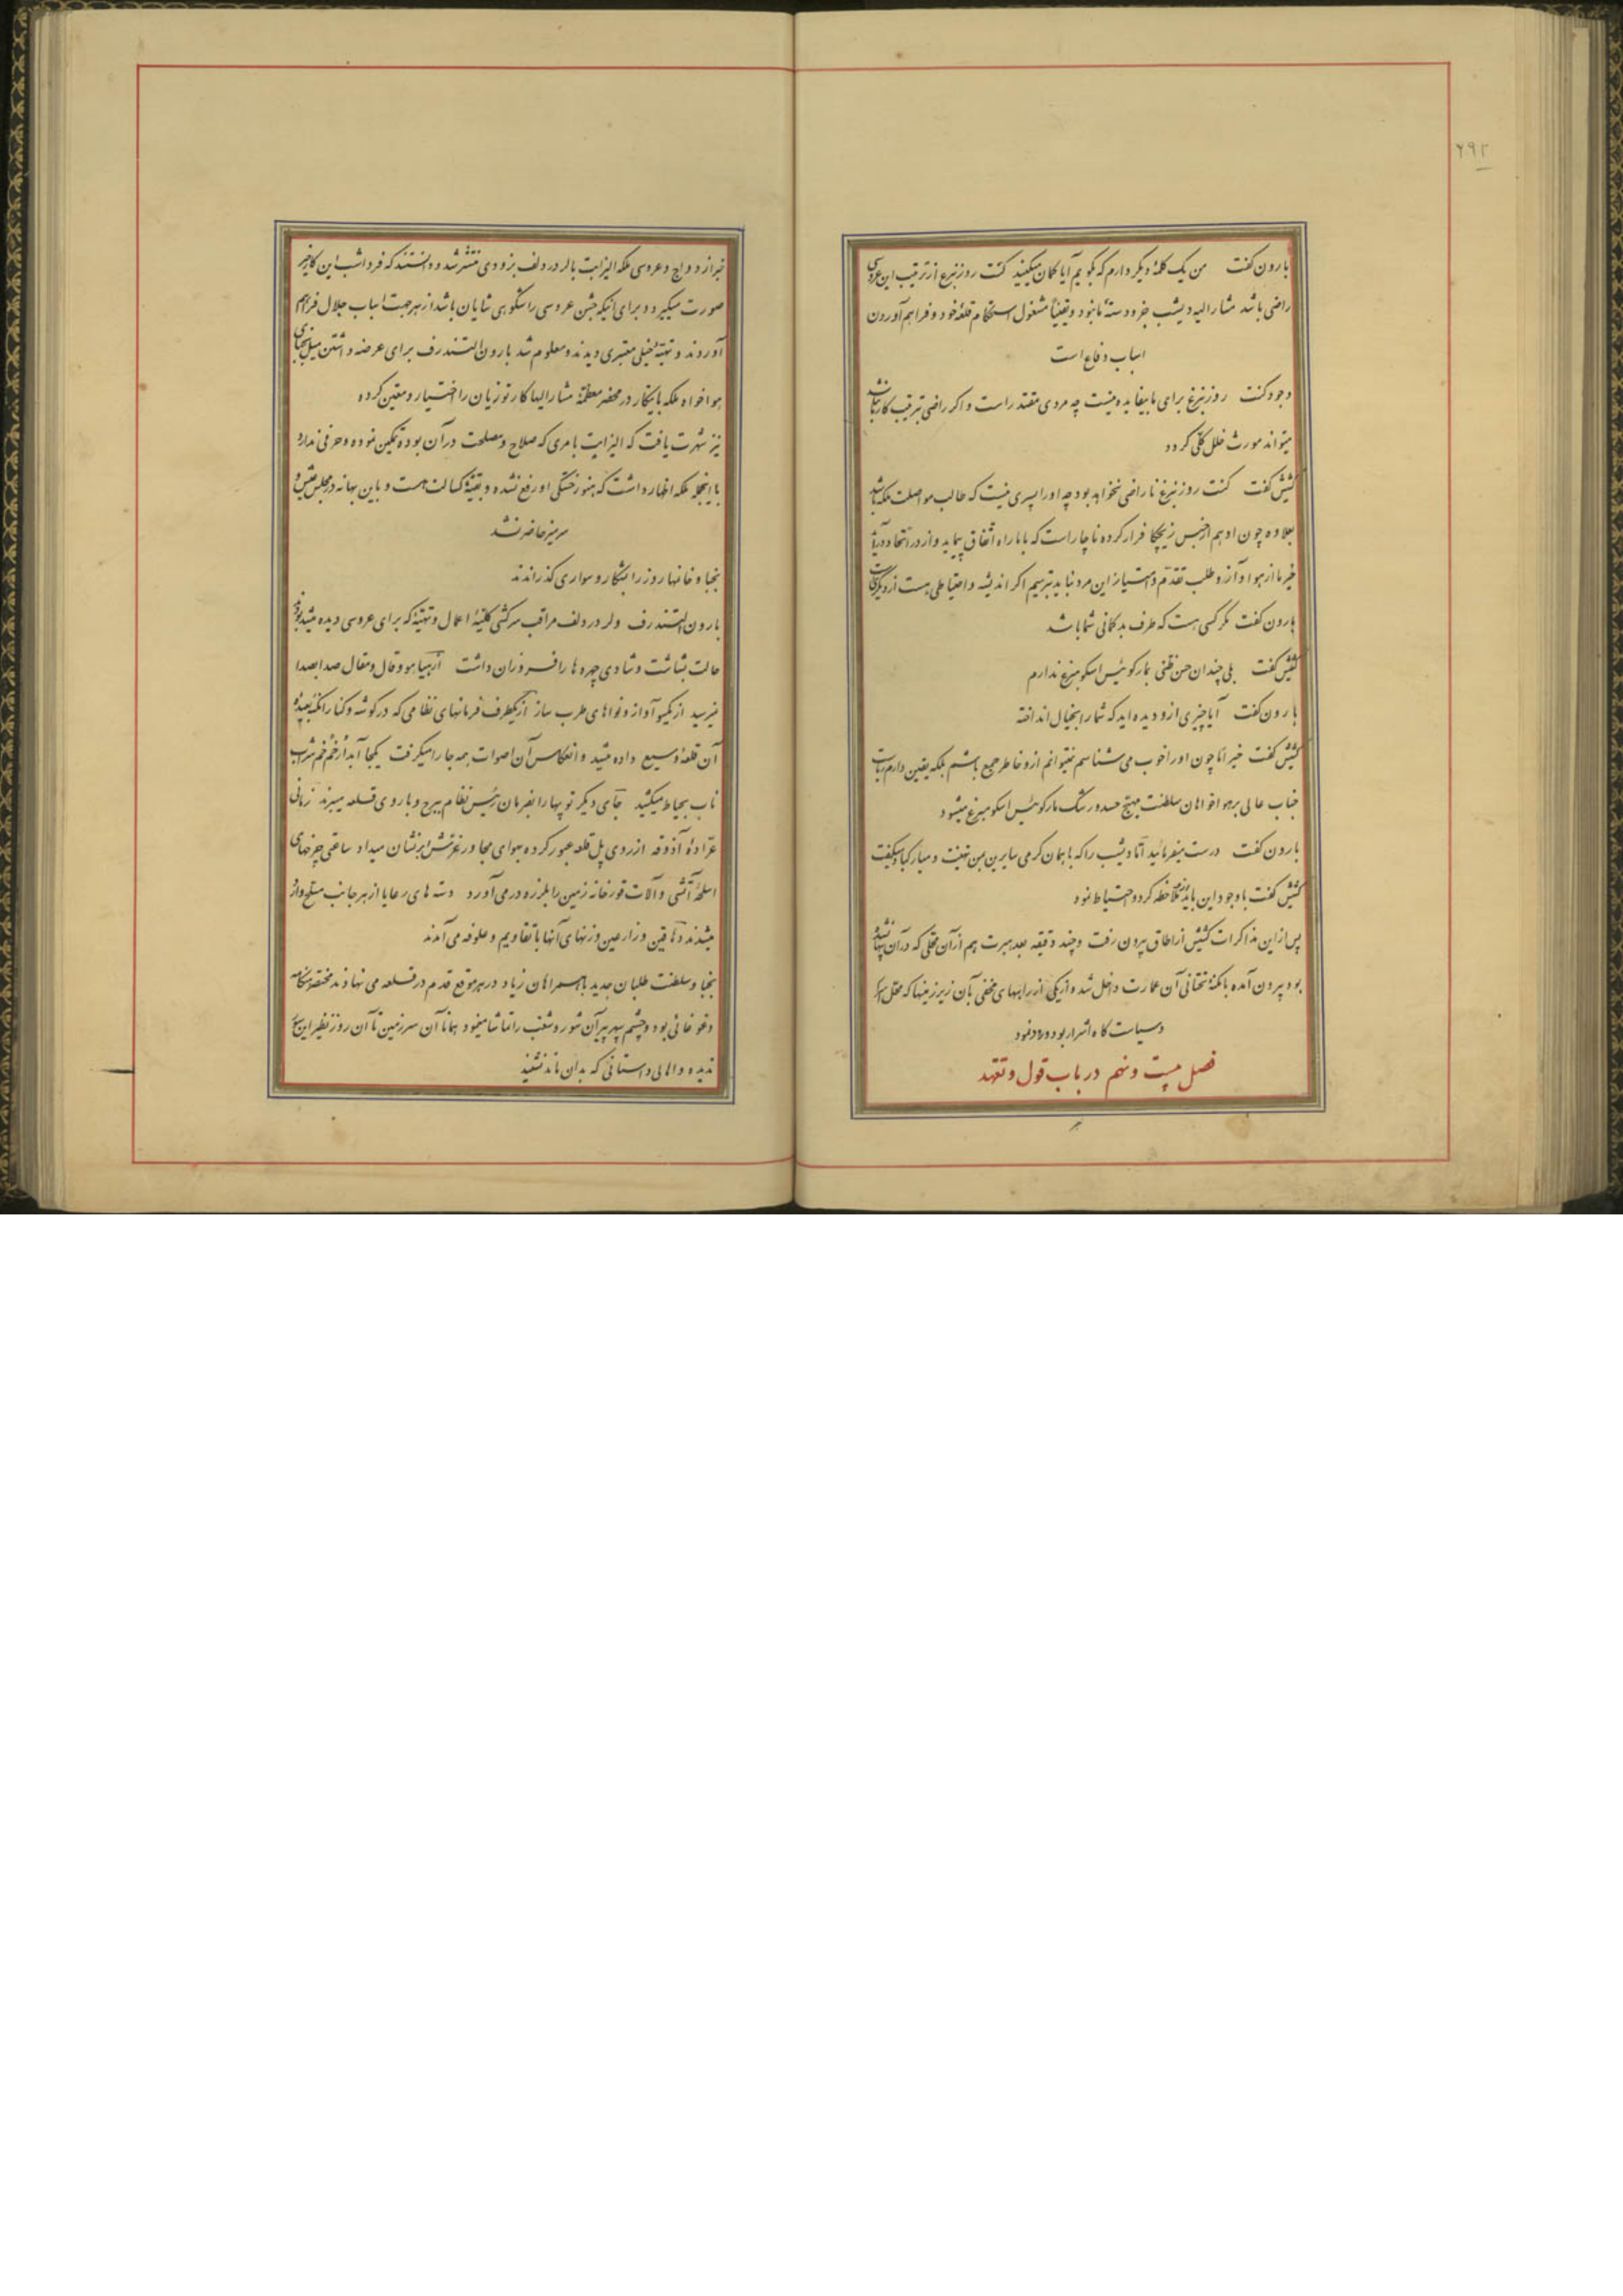 ۲۹۲
بارون گفت من یک کلمهٔ دیگر دارم که بگویم آیا گمان میکنید کنت روزنبرغ از ترتیب این عروسی
راضی باشد مشارالیه دیشب جزو دستهٔ ما نبود و یقیناً مشغول استحکام قلعهٔ خود و فراهم آوردن
اسباب دفاع است
وجود کنت روزنبرغ برای ما بیفایده نیست چه مردی مقتدر است و اگر راضی بترتیب کار ما نباشد
میتواند مورث خلل کلی گردد
کشیش گفت کنت روزنبرغ ناراضی نخواهد بود چه او را پسری نیست که طالب مواصلت ملکه باشد
بعلاوه چون او هم از حبس زیچکا فرار کرده ناچار است که با ما راه اتفاق پیماید و از در اتحاد درآید
خبر ما از هوا و آز و طلب تقدم و امتیاز این مرد نباید بترسیم اگر اندیشه و احتیاطی هست از دیگری است
بارون گفت مگر کسی هست که طرف بدگمانی شما باشد
کشیش گفت بلی چندان حسن ظنی بمارکوئیس اسکومبرغ ندارم
بارون گفت آیا چیزی ازو دیده‌اید که شما را بخیال انداخته
کشیش گفت خیر اما چون او را خوب می‌شناسم نمیتوانم ازو خاطر جمع باشم بلکه یقین دارم ریاست
جناب عالی بر هواخواهان سلطنت مهیج حسد و رشک مارکوئیس اسکومبرغ میشود
بارون گفت درست میفرمائید اما دیشب را که با همان گرمی سایرین بمن تهنیت و مبارکباد میگفت
کشیش گفت با وجود این باید ازو ملاحظه کرد و احتیاط نمود
پس از این مذاکرات کشیش از اطاق بیرون رفت و چند دقیقه بعد هبرت هم از آن محلی که در آن پنهان شده
بود بیرون آمده بامکنهٔ تحتانی آن عمارت داخل شد و از یکی از راههای مخفی بآن زیرزمینها که محل اسرار
و سیاست‌گاه اشرار بود ورود نمود
فصل بیست و نهم در باب قول و تعهد
خبر ازدواج و عروسی ملکه الیزابت با لرد ردلف بزودی منتشر شد و دانستند که فردا شب این کار خیر
صورت میگیرد و برای اینکه جشن عروسی را شکوهی شایان باشد از هر جهت اسباب جلال فراهم
آوردند و تهیهٔ خیلی معتبری دیدند و معلوم شد بارون التندرف برای عرضه داشتن میل نجبای
هواخواه ملکه باینکار در محضر معظمهٔ مشارالیها کارتوزیان را اختیار و معین کرده
نیز شهرت یافت که الیزابت بامری که صلاح و مصلحت در آن بوده تمکین نموده و حرفی ندارد
با اینجمله ملکه اظهار داشت که هنوز خستگی او رفع نشده و بقیهٔ کسالت هست و باین بهانه در مجلس عیش و
سر میز حاضر نشد
نجبا و خانمها روز را بشکار و سواری گذراندند
بارون التندرف و لرد ردلف مراقب سرکشی کلیهٔ اعمال و تهیهٔ که برای عروسی دیده میشد بودند
حالت بشاشت و شادی چهره‌ها را فروزان داشت از هیاهو و قال و مقال صدا بصدا
نمیرسید از یکسو آواز و نواهای طرب ساز از یکطرف فرمانهای نظامی که در گوشه و کنار امکنهٔ بعیدهٔ
آن قلعهٔ وسیع داده میشد و انعکاس آن اصوات همه جا را میگرفت یکجا آبدار خم خم شراب
ناب بحیاط میکشید جای دیگر توپها را بفرمان رئیس نظام ببرج و باروی قلعه میبرند زمانی
عرادهٔ آذوقه از روی پل قلعه عبور کرده هوای مجاور غرش ابر نشان میداد ساعتی چرخهای
اسلحهٔ آتشی و آلات قورخانه زمین را بلرزه در می‌آورد دسته‌های رعایا از هر جانب مسلح وارد
میشدند دهاقین و زارعین و زنهای آنها با تقاویم و علوفه می‌آمدند
نجبا و سلطنت طلبان جدید با همراهان زیاد در هر موقع قدم در قلعه می نهادند مختصر هنگامه
و غوغائی بود و چشم سپهر پیر آن شور و شغب را تماشا مینمود همانا آن سرزمین تا آن روز نظیر این سور
ندیده و اهالی داستانی که بدان ماند نشنید